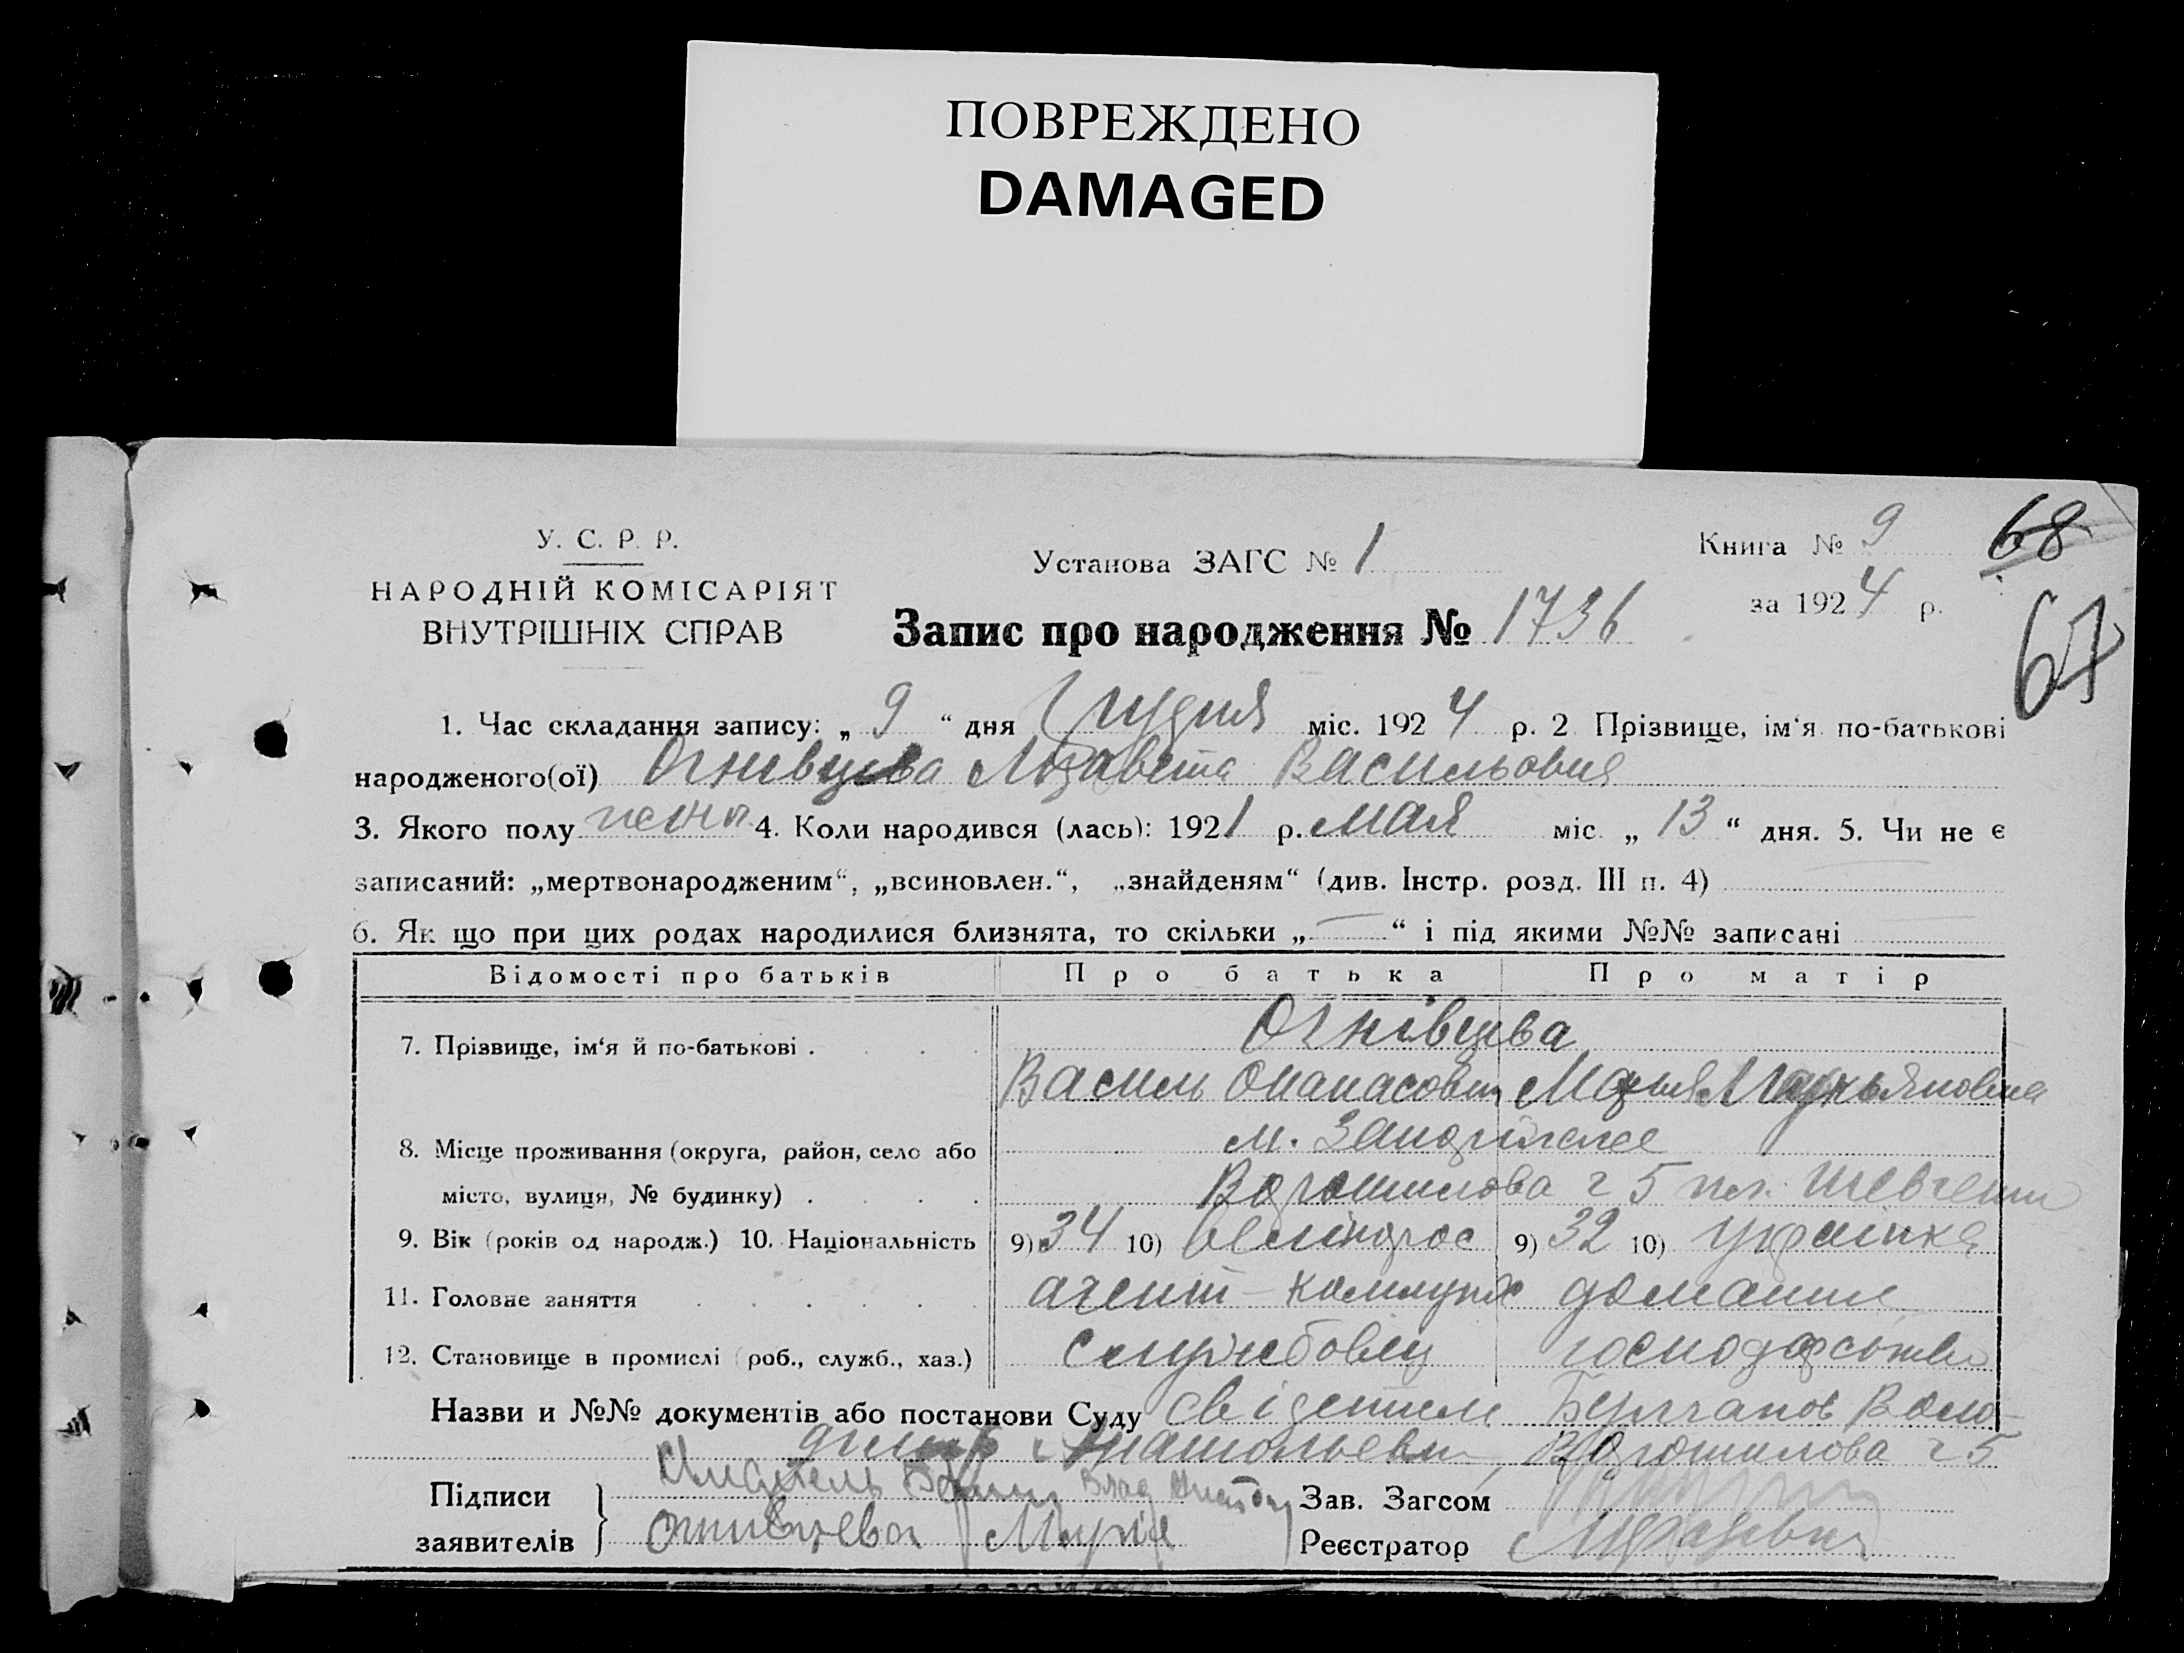 ПОВРЕЖДЕНО
DAMAGED
У. С. Р. Р.
НАРОДНІЙ КОМІСАРІЯТ
ВНУТРІШНІХ СПРАВ
Установа ЗАГС № 1
Запис про народження № 1736
Книга № 9
за 1924 р.
68
67
1. Час складання запису: „ 9 “ дня Грудня міс. 1924 р. 2 Прізвище, ім‘я по-батькові
народженого(ої) Огнівцева Лізавета Васильовня
3. Якого полу жен. 4. Коли народився (лась): 1921 р. мая міс. „ 13 “ дня. 5. Чи не є
записаний: „мертвонародженим“, „всиновлен.“, „знайденям“ (див. Інстр. розд. III п. 4)
6. Як що при цих родах народилися близнята, то скільки „ — “ і під якими №№ записані
Відомості про батьків Про батька Про матір
7. Прізвище, ім‘я й по-батькові . Огнівцева
Василь Опанасович Мария Маркьяновна
8. Місце проживання (округа, район, село або м. Запоріжжє
місто, вулиця, № будинку) . Ворошилова 5
9. Вік (років од народж.) 10. Національність 9) 34 10) Великорос 9) 32 10) Українка
11. Головне заняття агент домашнє
12. Становище в промислі (роб., служб., хаз.) Службовец господарство
Назви и №№ документів або постанови Суду Воло-
димир Анатольевич, Ворошилова 5
Підписи
заявителів Огнивцева Мария
Зав. Загсом
Реєстратор